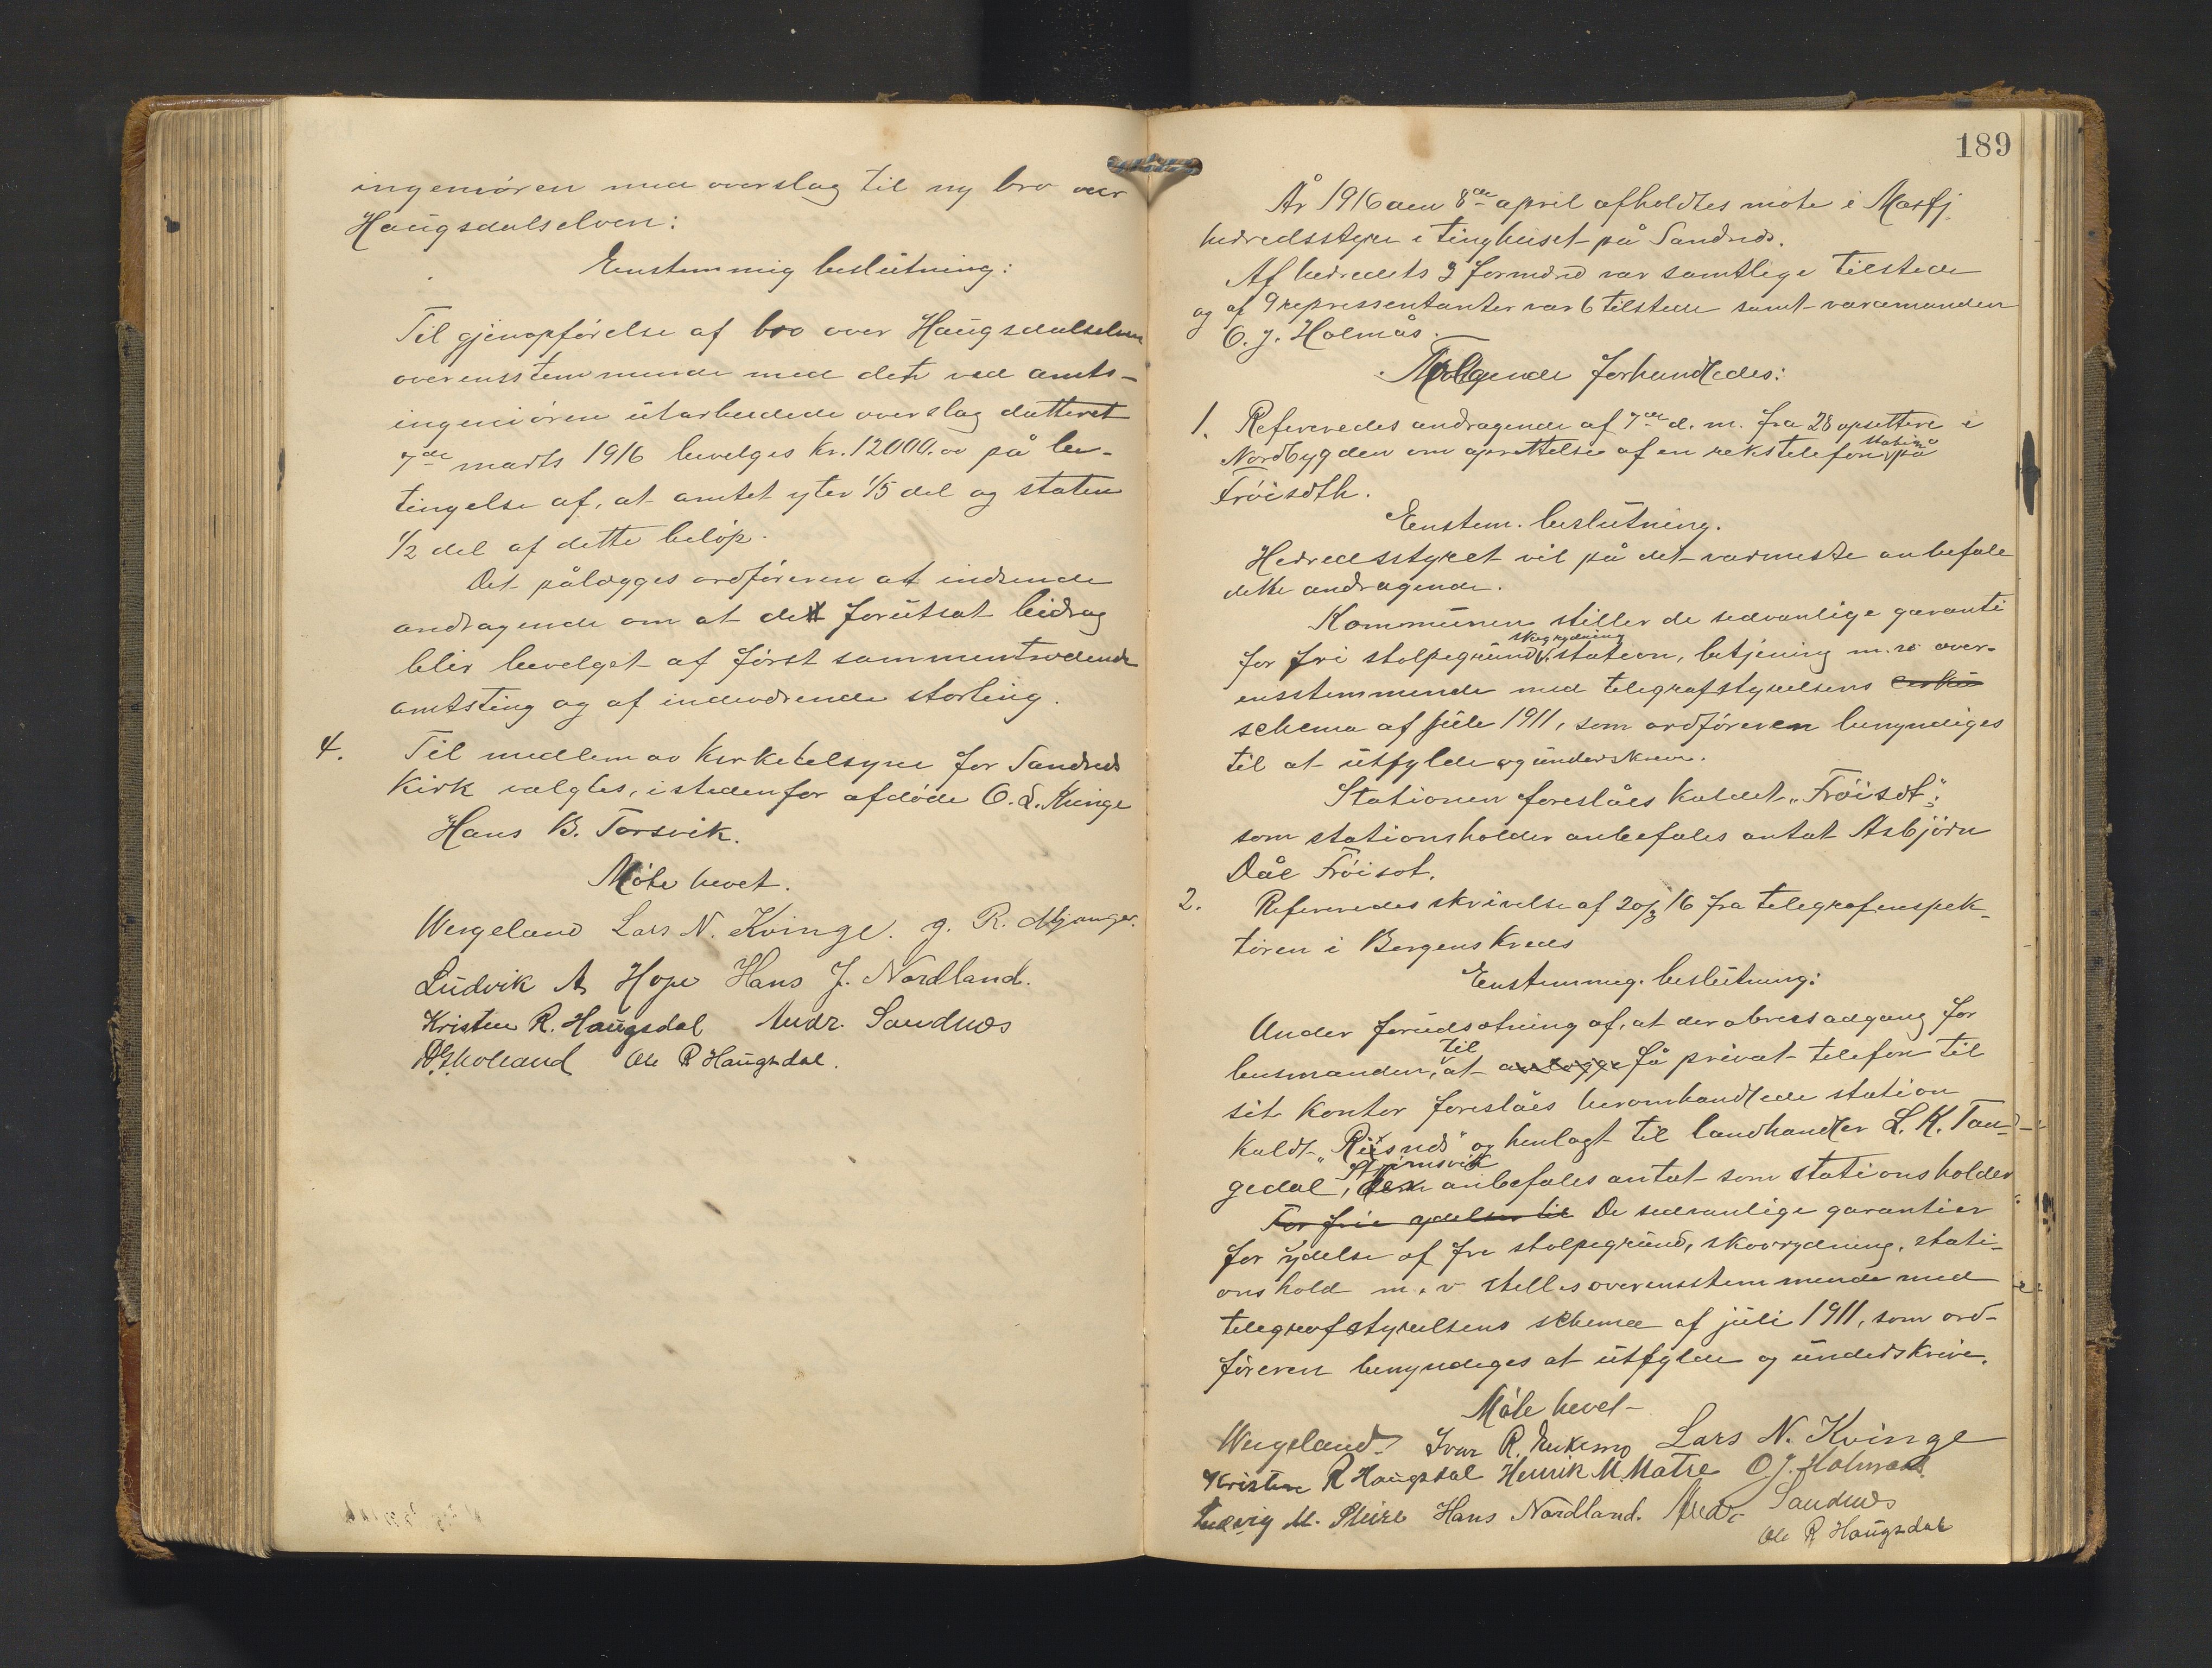 ingeniøren med overslag til ny bro over
Haugsdalselven:
Enstemmig beslutning:
Til gjenopførelse af bro over Haugsdalselven
overensstemmende med det ved amts-
ingeniøren utarbeidede overslag datteret
7de marts 1916 bevelges kr. 12000.00 på be-
tingelse af, at amtet yter 1/5 del og staten
1/2 del af dette beløp.
Det pålægges ordføreren at indsende
andragende om at det forutsat bidrag
blir bevelget af først sammentrædende
amtsting og af indeværende storting.
4. Til medlem av kirketelsyne for Sandnes
Kirk valgtes, istedenfor afdøde O. L. Kvinge
Hans B. Torsvik.
Møte hevet.
Wergeland Lars N. Kvinge. J. R. Mjanger.
Ludvik A Hope Hans J. Nordland.
Kristen R. Haugsdal Andr. Sandnæs
Ole R Haugsdal.
189
År 1916 den 8de april afholdtes møte i Masfj.
herredsstyre i tinghuset på Sandnæs.
Af herredets 3 formænd var samtlige tilstede
og af 9 repressentanter var 6 tilstede samt varamanden
O. J. Holmås.
Følgende forhandledes:
1. Refereredes andragende af 7de d. m. fra 28 opsittere i
Nordbygden om oprettelse af en rikstelefon station på
Frøiseth.
Enstem. beslutning.
Herredsstyret vil på det varmeste anbefale
dette andragende.
Kommunen stiller de sedvanlige garanti
for fri stolpegrund, skogrydning station, betjening m. v. over-
ensstemmende med telegrafstyrelsens
schema af juli 1911, som ordføreren bemyndiges
til at utfylde og underskrive.
Stationen foreslåes kaldet „Frøiset";
som stationsholder anbefales antat Asbjørn
Dåe Frøiset.
2. Refereredes skrivelse af 20/3 16 fra telegrafinspek-
tøren i Bergens Kreds
Enstemmig. beslutning:
Under forudsetning af, at der åbnes adgang for
lensmanden, til at anlægge få privat telefon til
sit kontor foreslåes heromhandlede station
kaldt „Risnes" og henlagt til landhandler L. K. Tan-
gedal, Stjernsvik den anbefales antat som stationsholder
For frie ydelser til De sedvanlige garantier
for ydelse af fri stolpegrund, skovrydning, stati-
onshold m. v stilles overensstemmende med
telegrafstyrelsens schema af juli 1911, som ord-
føreren bemyndeges at utfylde og underskrive.
Møte hevet
Wergeland. Ivar R. Lars N. Kvinge
Kristen R Haugsdal Henrik M. Matre O. J. Holmaas.
Ludvig M. Hans Nordland. Andr Sandnæs
Ole R Haugsdal